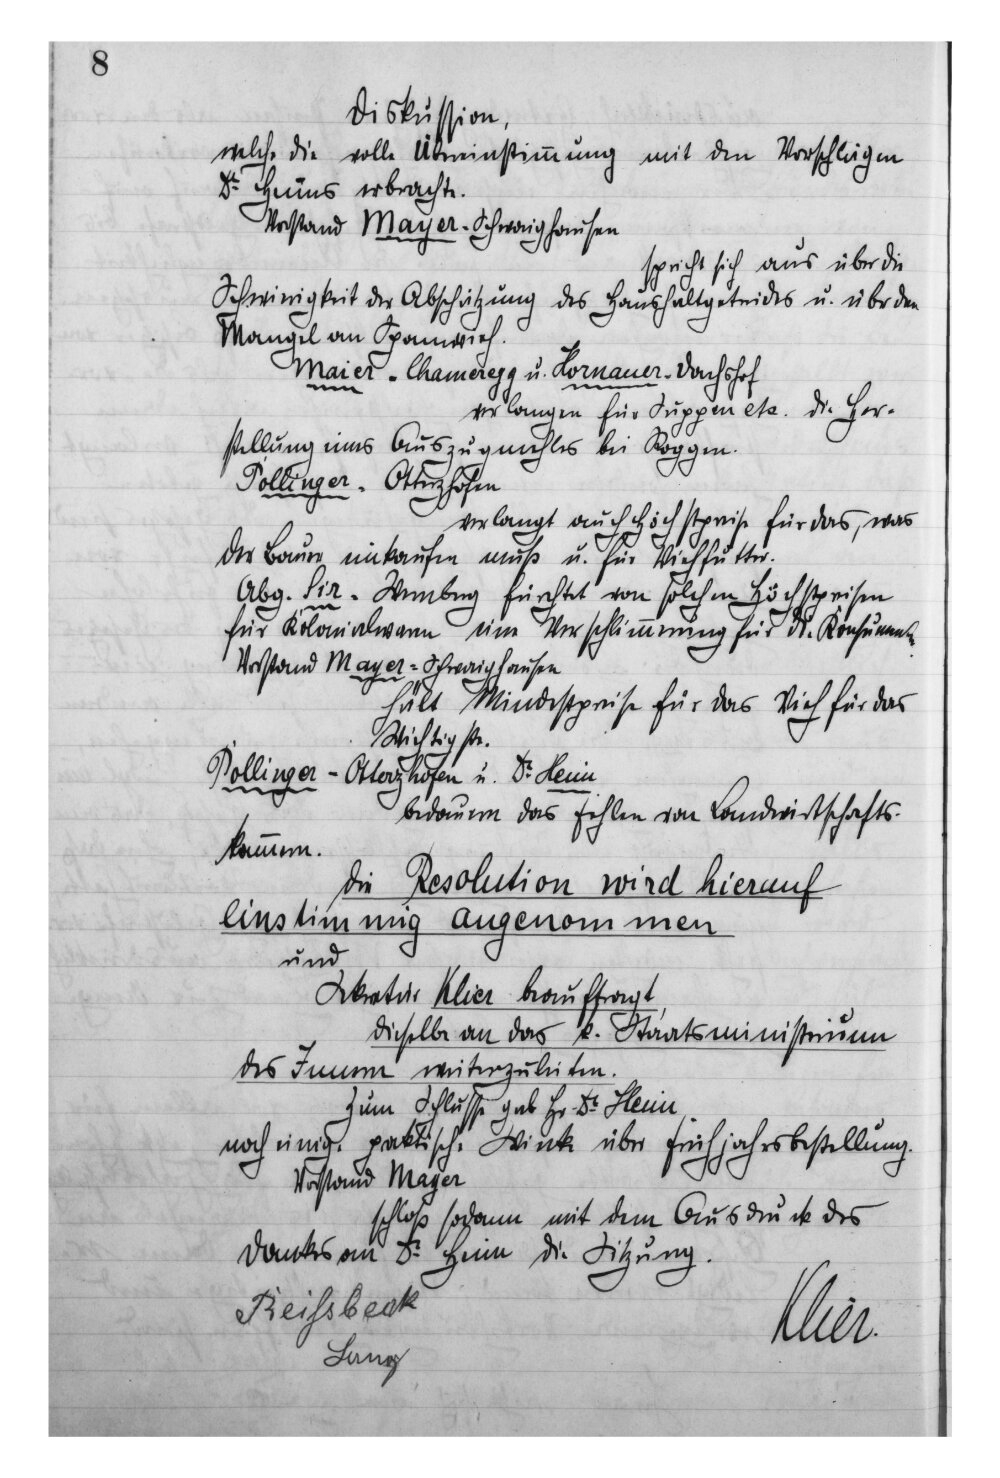 8
Diskussion,
welche die volle Übereinstimmung mit den Vorschlägen
Dr. Heims erbrachte.
Vorstand Mayer-Schwaighausen
spricht sich aus über die
Schwierigkeit der Abschätzung des Haushaltgetreides u. über den
Mangel an Spannvieh.
Maier - Chameregg u. Hornauer-Dachshof
verlangen für Suppen etc. die Her-
stellung eines Auszugmehles bei Roggen.
Pollinger - Otterzhofen
verlangt auch Höchstpreise für das, was
der Bauer einkaufen muß u. für Viehfutter.
Abg. Sir - Wernberg fürchtet von solchen Höchstpreisen
für Kolonialwaren eine Verschlimmerung für die Konsumenten.
Vorstand Mayer-Schwaighausen
hält Mindestpreise für das Vieh für das
Wichtigste.
Pollinger - Otterzhofen u. Dr. Heim
bedauern das Fehlen von Landwirtschafts-
kammern.
Die Resolution wird hierauf
einstimmig angenommen
und
Sekretär Klier beauftragt,
dieselbe an das k. Staatsministerium
des Innern weiterzuleiten.
Zum Schlusse gab Hr. Dr. Heim
noch einige praktische Winke über Frühjahrsbestellung.
Vorstand Mayer
schloß sodann mit dem Ausdruck des
Dankes an Dr. Heim die Sitzung.
Reissbeck
Klier.
Lang